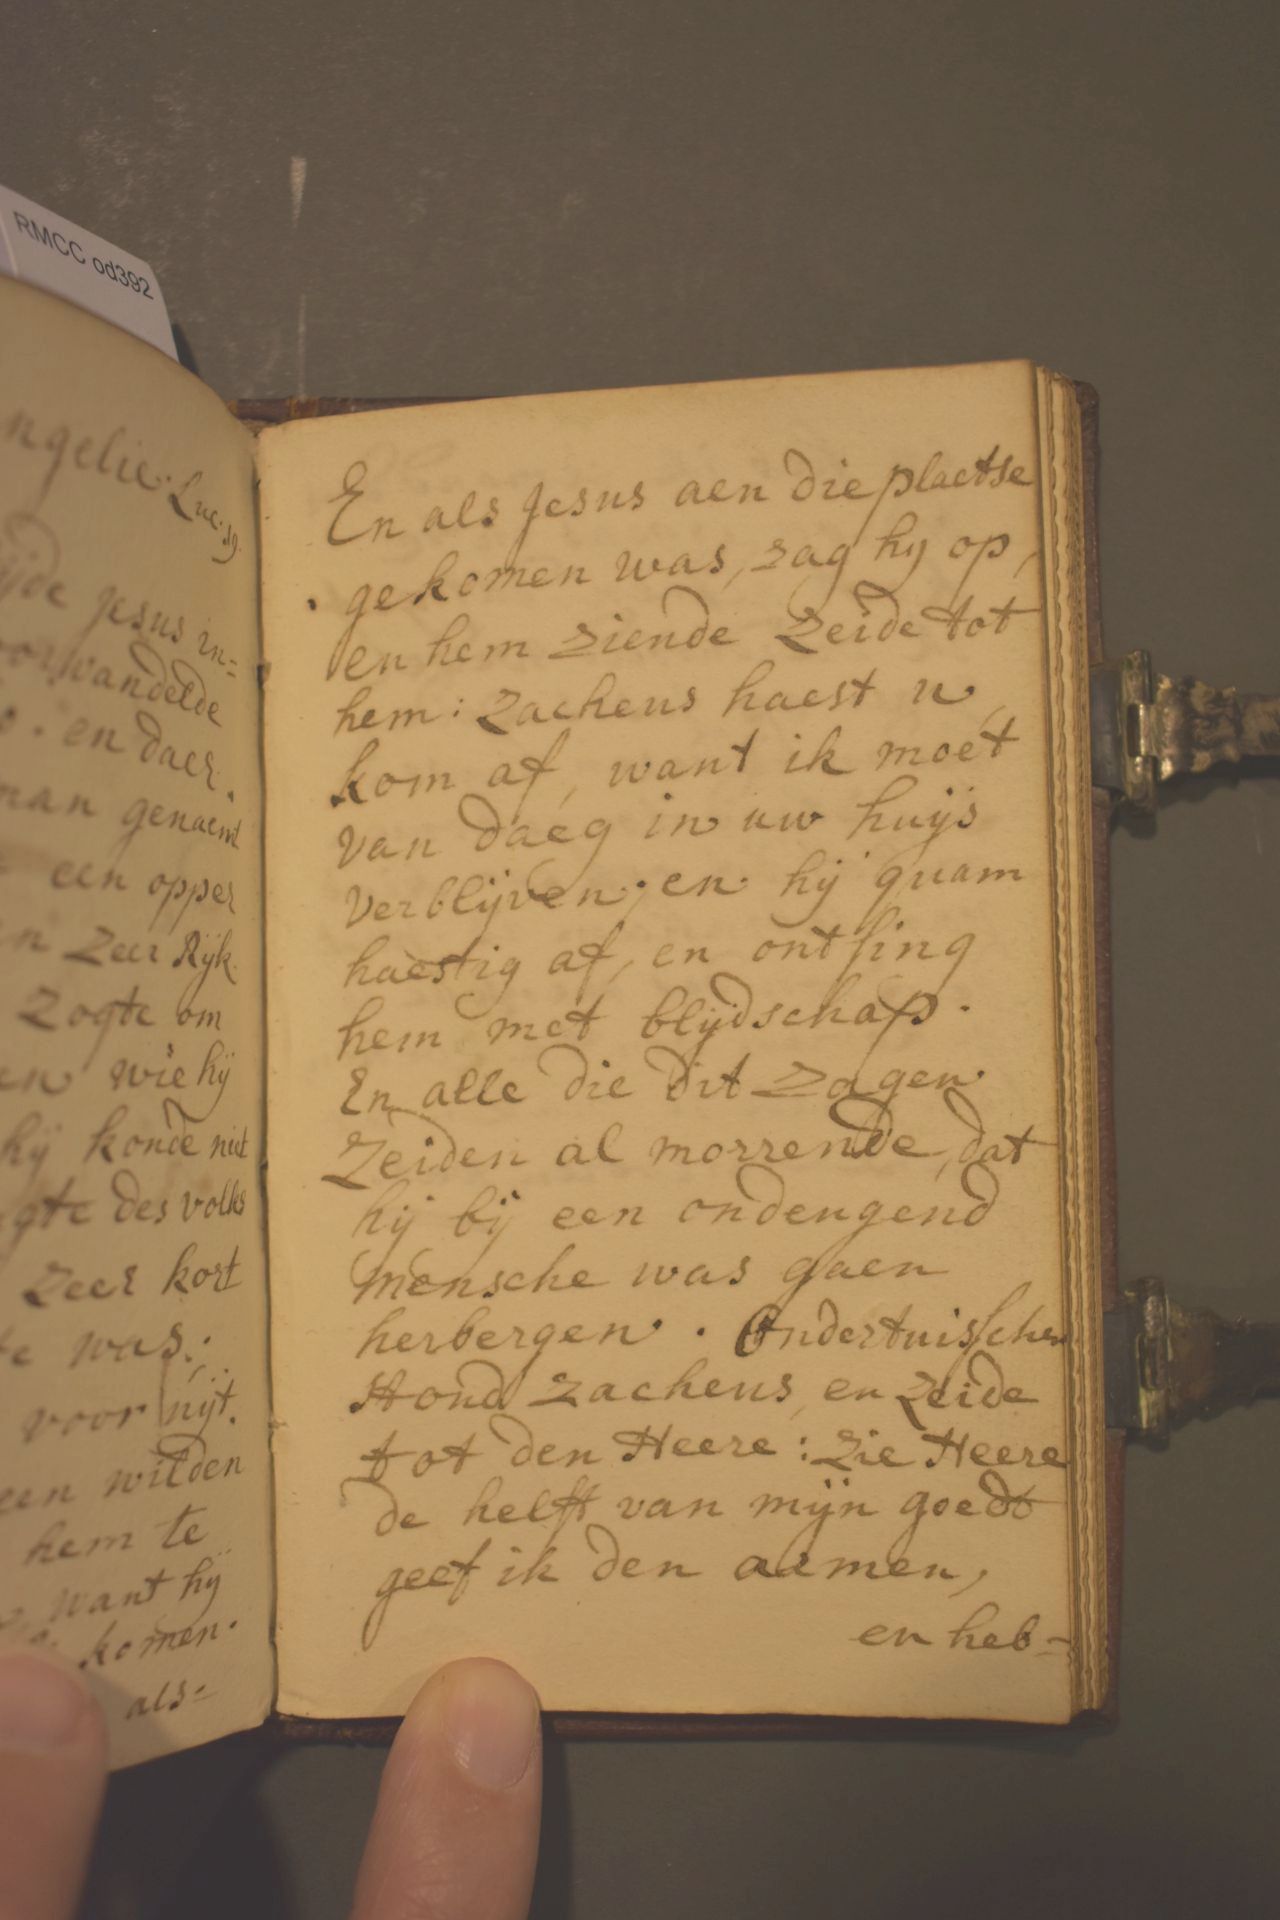 RMCC od392
ngelie. Luc. 19.
ijde Jesus in=
oorwandelde
. en daer
man genaemt
een opper
en zeer Rijk.
zogte om
en wie hij
hij konde niet
gte des volks
zeer kort
te was.
voor uijt.
een wilden
hem te
want hij
komen.
als=
En als Jesus aen die plaetse
gekomen was, zag hij op,
en hem ziende zeide tot
hem: Zacheus haest u,
kom af, want ik moet
van daeg in uw huijs
verblijven; en hij quam
haestig af, en ontfing
hem met blijdschap.
En alle die dit zagen
zeiden al morrende, dat
hij bij een ondeugend
mensche was gaen
herbergen. Ondertuisschen
stond Zacheus, en zeide
tot den Heere: zie Heere
de helft van mijn goedt
geef ik den aemen,
en heb=